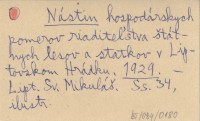 Nástin hospodárskych
pomerov riaditeľstva štát-
nych lesov a statkov v Lip-
tovskom Hrádku, 1929. –
Lipt. Sv. Mikuláš. Ss. 34,
ilustr.